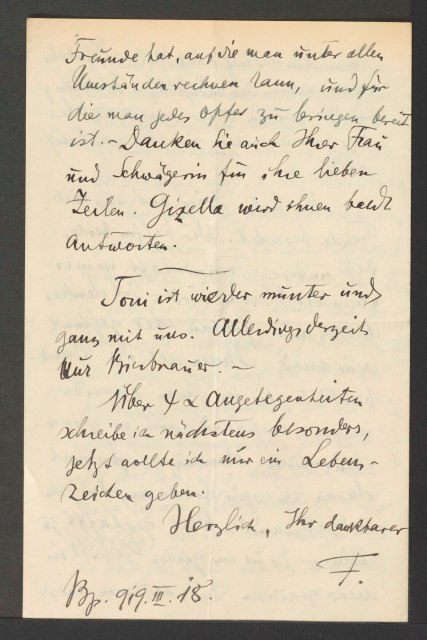 Freunde hat, auf die man unter allen
Umständen rechnen kann, und für
die man jedes Opfer zu bringen bereit
ist. – Danken Sie auch Ihrer Frau
und Schwägerin für ihre lieben
Zeilen. Gisella wird ihnen bald
antworten.
Toni ist wieder munter und
ganz mit uns. Allerdings derzeit
nur Bierbrauer. –
Über Angelegenheiten
schreibe ich nächstens besonders,
jetzt wollte ich nur ein Lebens-
zeichen geben.
Herzlich, Ihr dankbarer
F.
Bp. 919. III. 18.